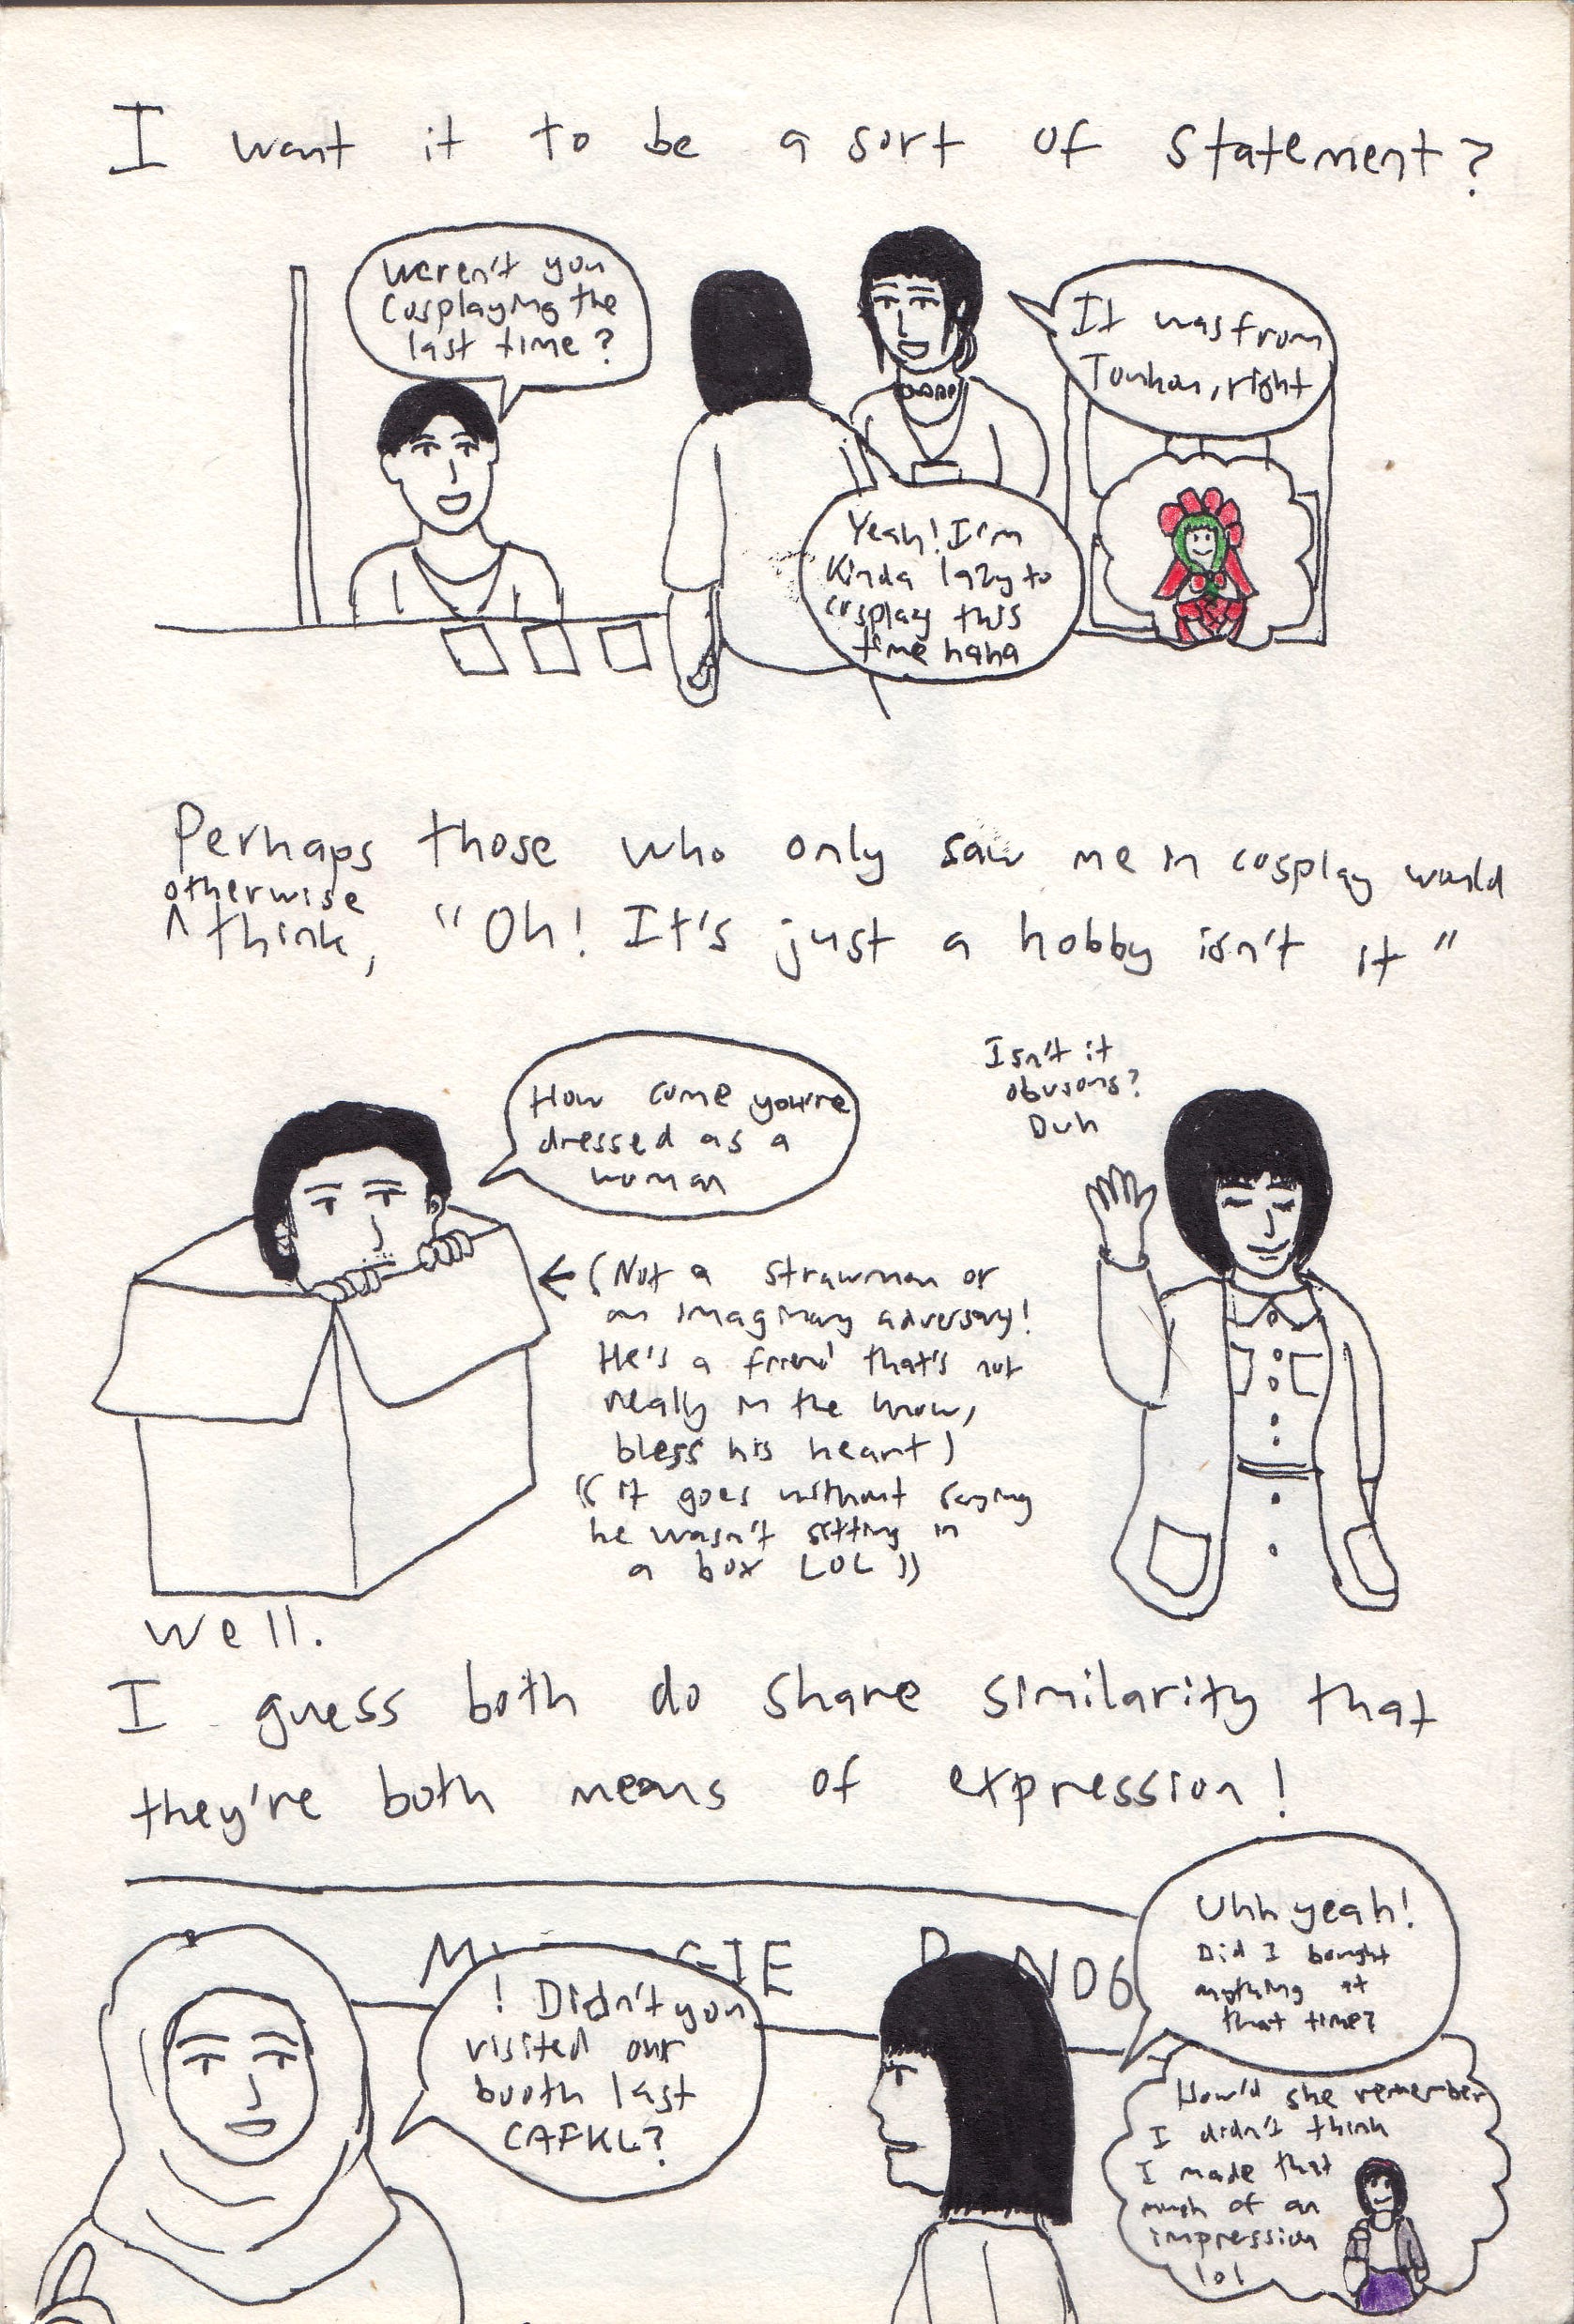 I want it to be a sort of statement?
Weren't you
cosplaying the
last time?
It was from
Touhou, right
Yeah! I'm
kinda lazy to
cosplay this
time haha
Perhaps those who only saw me in cosplay would
otherwise
^ think, "Oh! It's just a hobby isn't it"
How come you're
dressed as a
woman
Isn't it
obvsons?
Duh
← (Not a strawman or
an imaginary adversary!
He's a friend that's not
really in the know,
bless his heart)
((it goes without saying
he wasn't sitting in
a box LOL))
Well.
I guess both do share similarity that
they're both means of expression!
! Didn't you
visited our
booth last
CAFKL?
Uhh yeah!
Did I bought
anything at
that time?
How'd she remember
I didn't think
I made that
much of an
impression
lol